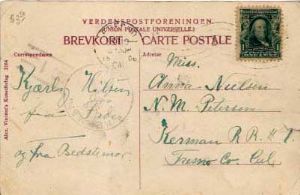 VERDENSPOSTFORENINGEN
(UNION POSTALE UNIVERSELLE)
BREVKORT - CARTE POSTALE
Correspondance
Adresse
Kjærlig Hilsen
fra
og fra Bedstemor
Miss.
Anna Nielsen
N. M. Petersen
Kerman R. R. # 1
Fresno Co. Cal
CAL
Alex. Vincents Kunstforlag